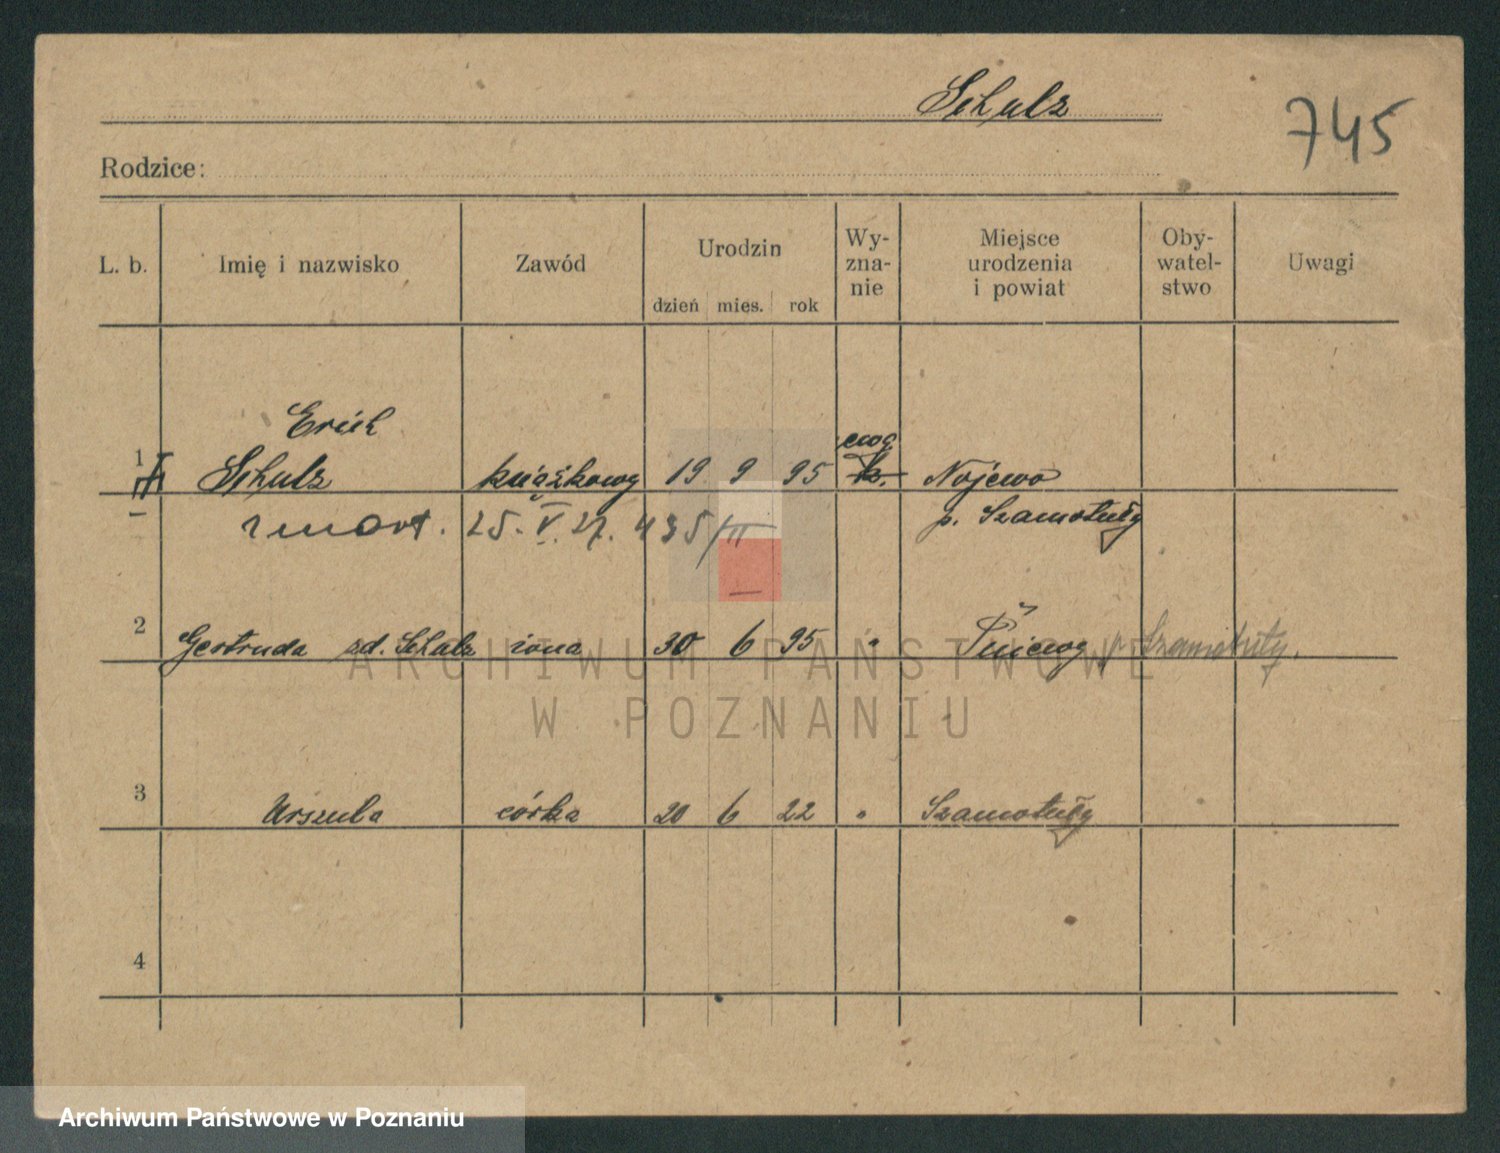 Schulz
745
Rodzice:
L. b. Imię i nazwisko Zawód Urodzin dzień mies. rok Wy-zna-nie Miejsce urodzenia i powiat Oby-watel-stwo Uwagi
Erich ewg
1 Schulz książkowy 19 9 95 k. Nojewo
zmarł. 25. V. 27. 435/II p. Szamotuły
2 Gertruda zd. Schulz żona 30 6 95 " Pniewy p. Szamotuły.
ARCHIWUM PAŃSTWOWE
W POZNANIU
3 Urszula córka 20 6 22 " Szamotuły
4
Archiwum Państwowe w Poznaniu